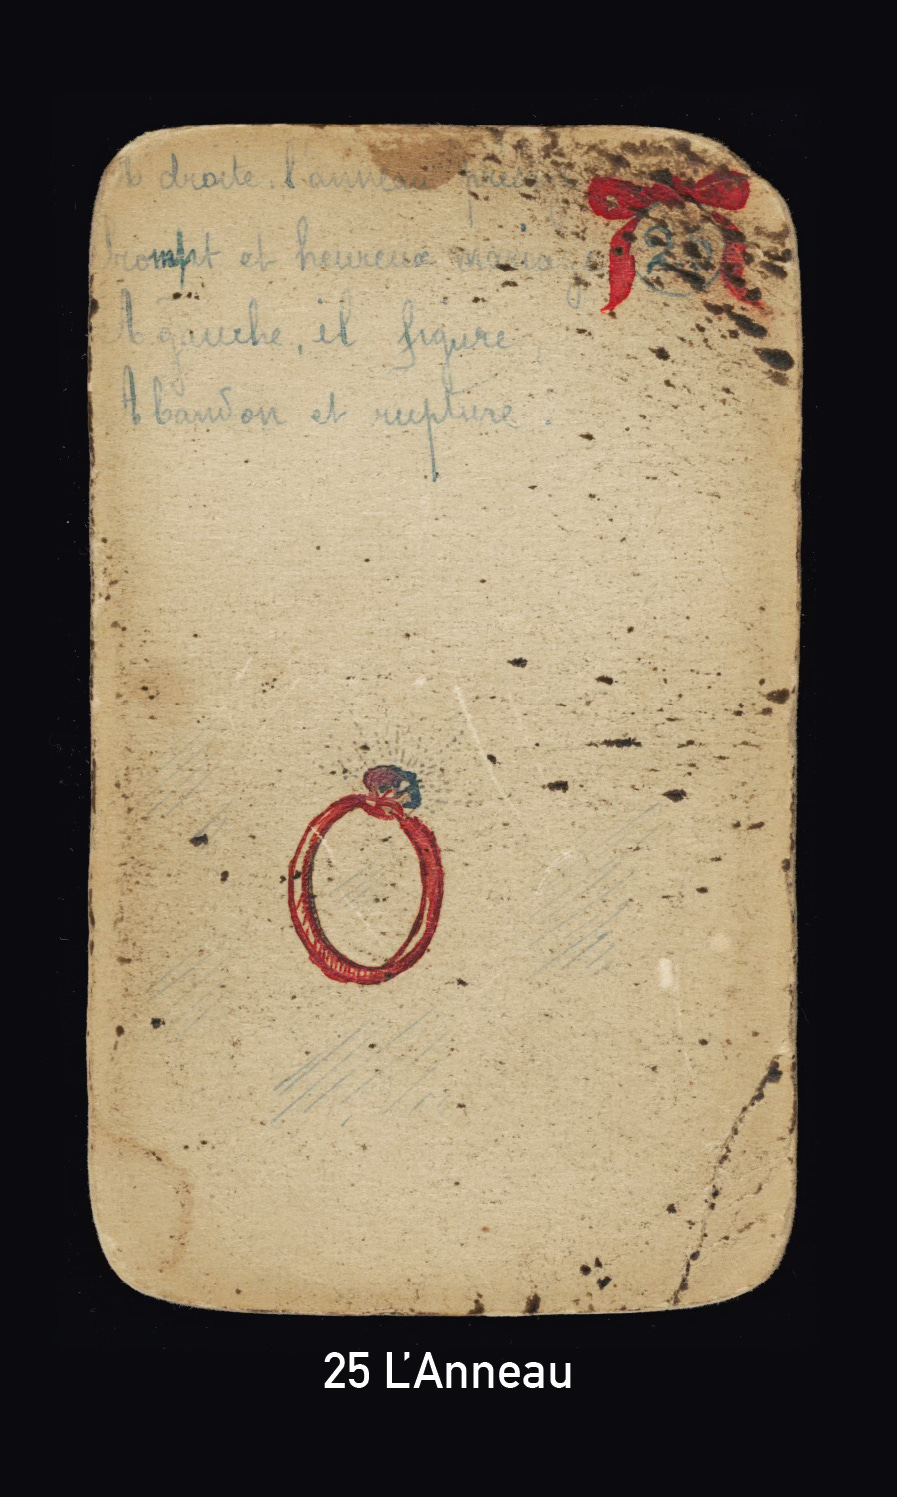 A droite, l'anneau prédit
Prompt et heureux mariage
25
A gauche, il figure,
Abandon et rupture.
25 L'Anneau